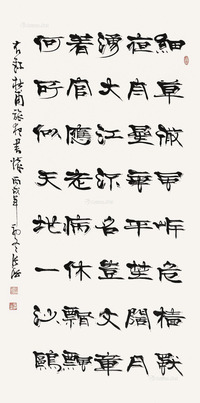 細草微風岸危檣獨
夜舟星垂平野闊月
湧大江流名豈文章
著官應老病休飄飄
何所似天地一沙鷗
右錄杜甫旅夜書懷丙戌年